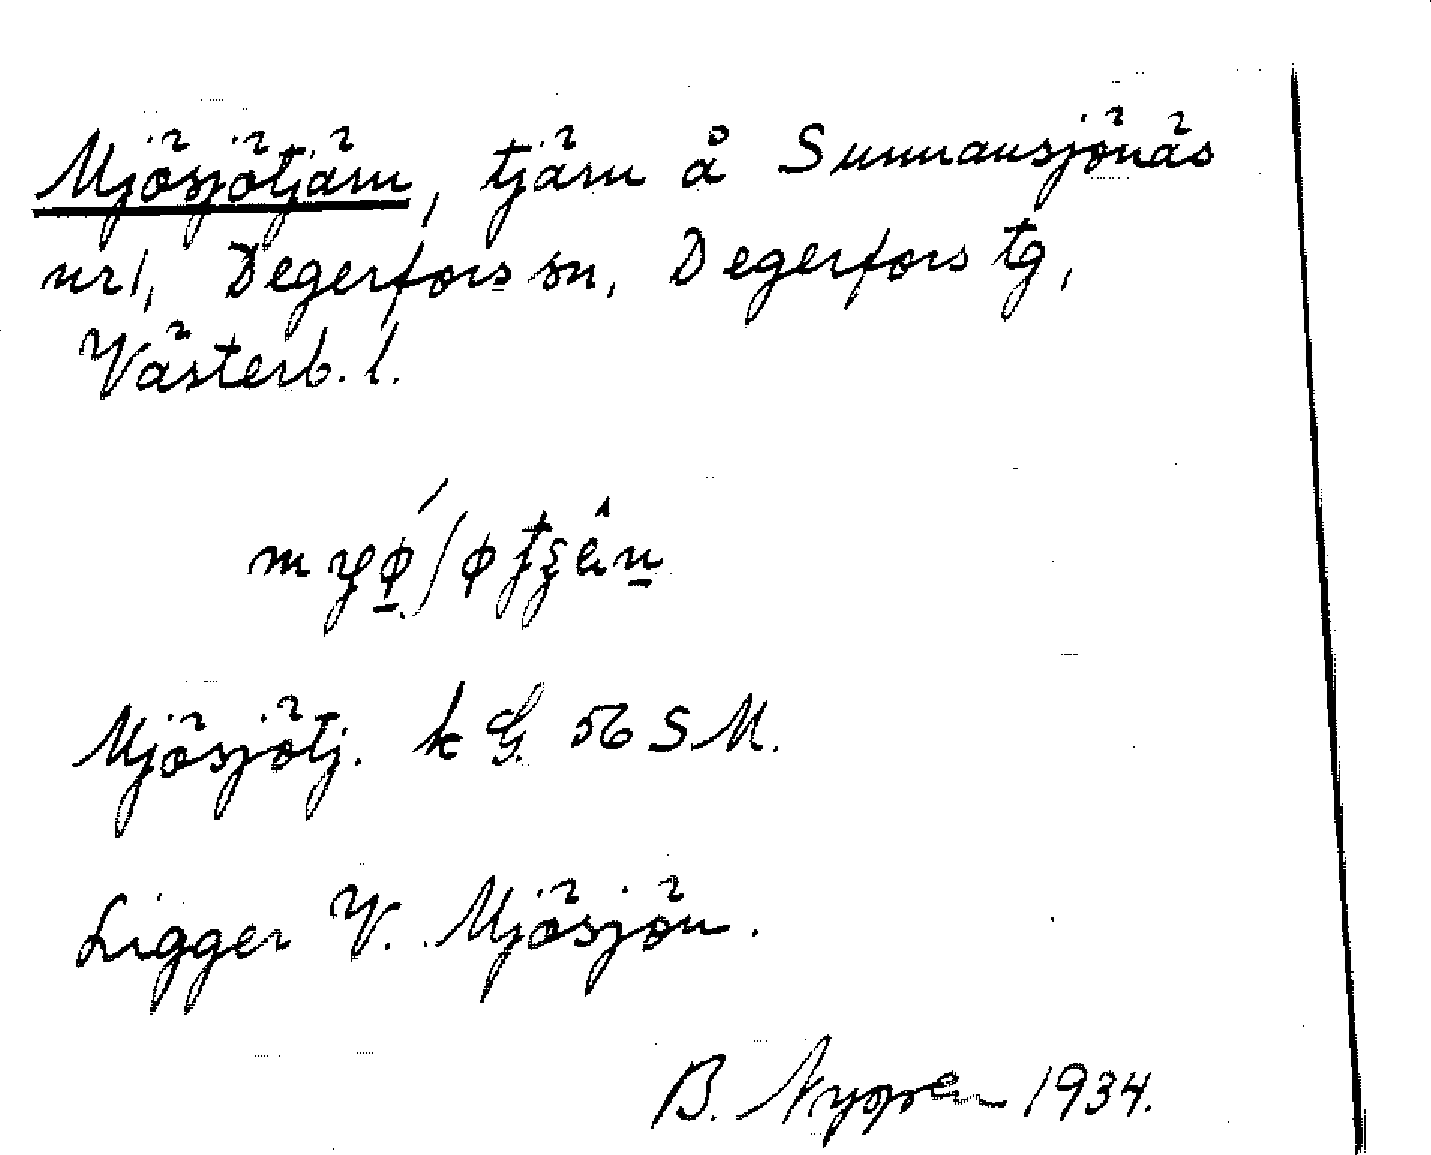 Mjösjötjärn, tjärn å Sunnansjönäs
nr 1, Degerfors sn, Degerfors tg,
Västerb. l.
Mjösjötj. k G. 56 SM.
Ligger V. Mjösjön.
B. 1934.